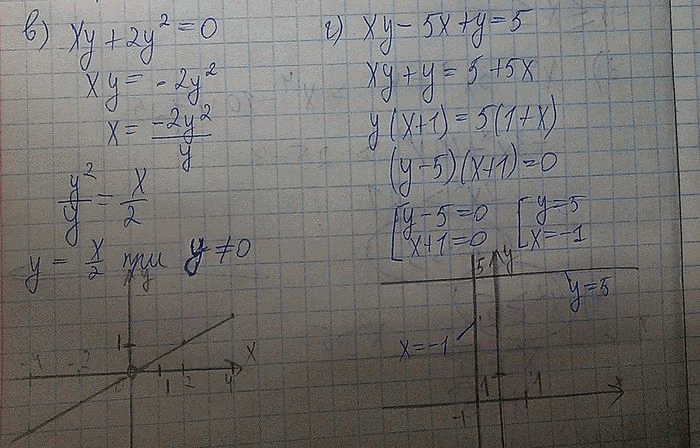 в) xy + 2y² = 0
xy = -2y²
x = -2y²/y
y²/y = x/2
y = x/2 при y ≠ 0
y
1
-4 -2 0 1 2 4 x
г) xy - 5x + y = 5
xy + y = 5 + 5x
y(x+1) = 5(1+x)
(y-5)(x+1) = 0
[y-5=0 [y=5
[x+1=0 [x=-1
5 y
y=5
x=-1
1
-1 1 x